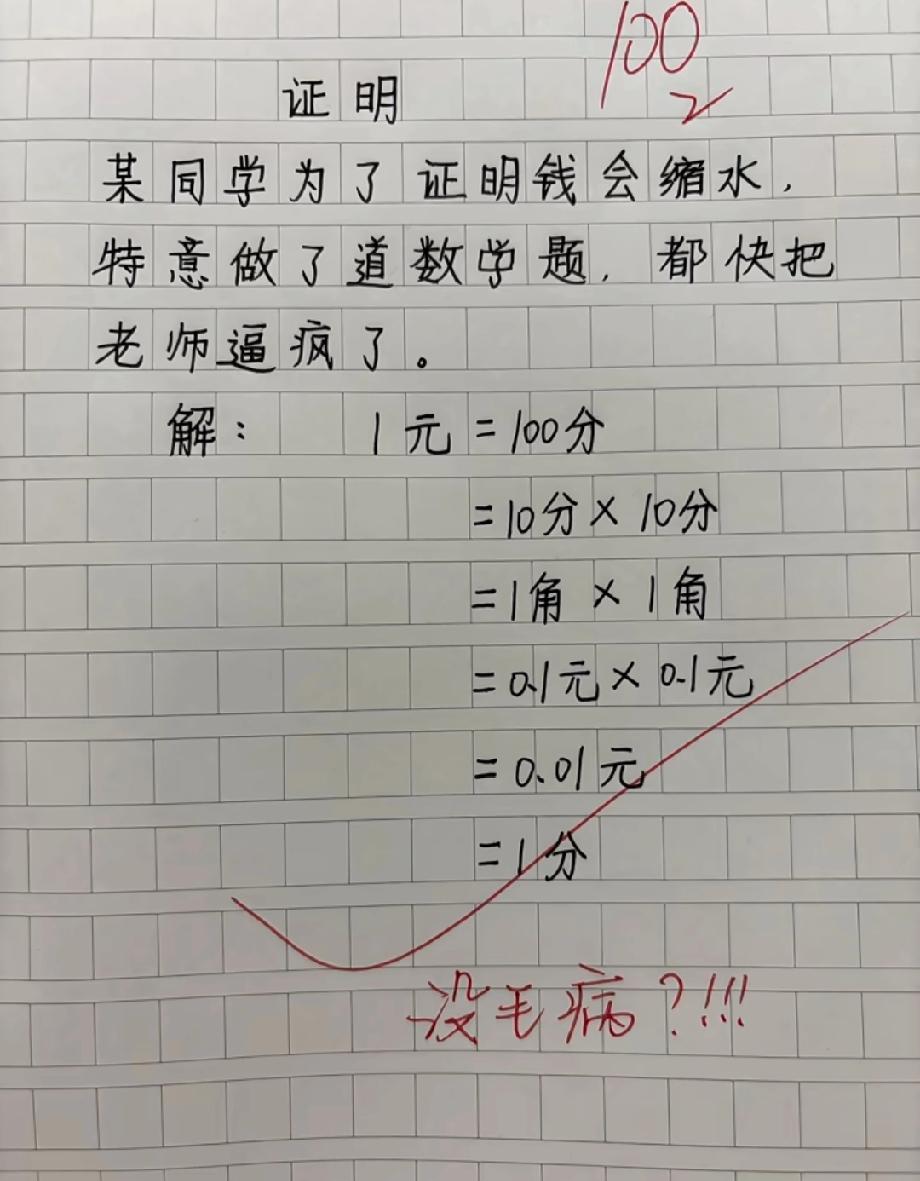 100
证明
某同学为了证明钱会缩水，
特意做了道数学题，都快把
老师逼疯了。
解： 1元=100分
=10分×10分
=1角×1角
=0.1元×0.1元
=0.01元
=1分
没毛病？!!!